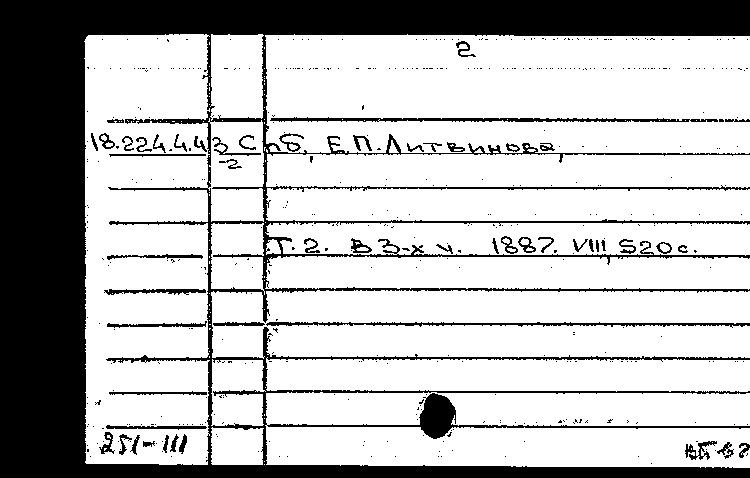 2
18.224.4.43 Спб., Е.П. Литвинова,
2
Т. 2. В 3-х ч. 1887. VIII, 520 с.
251-III